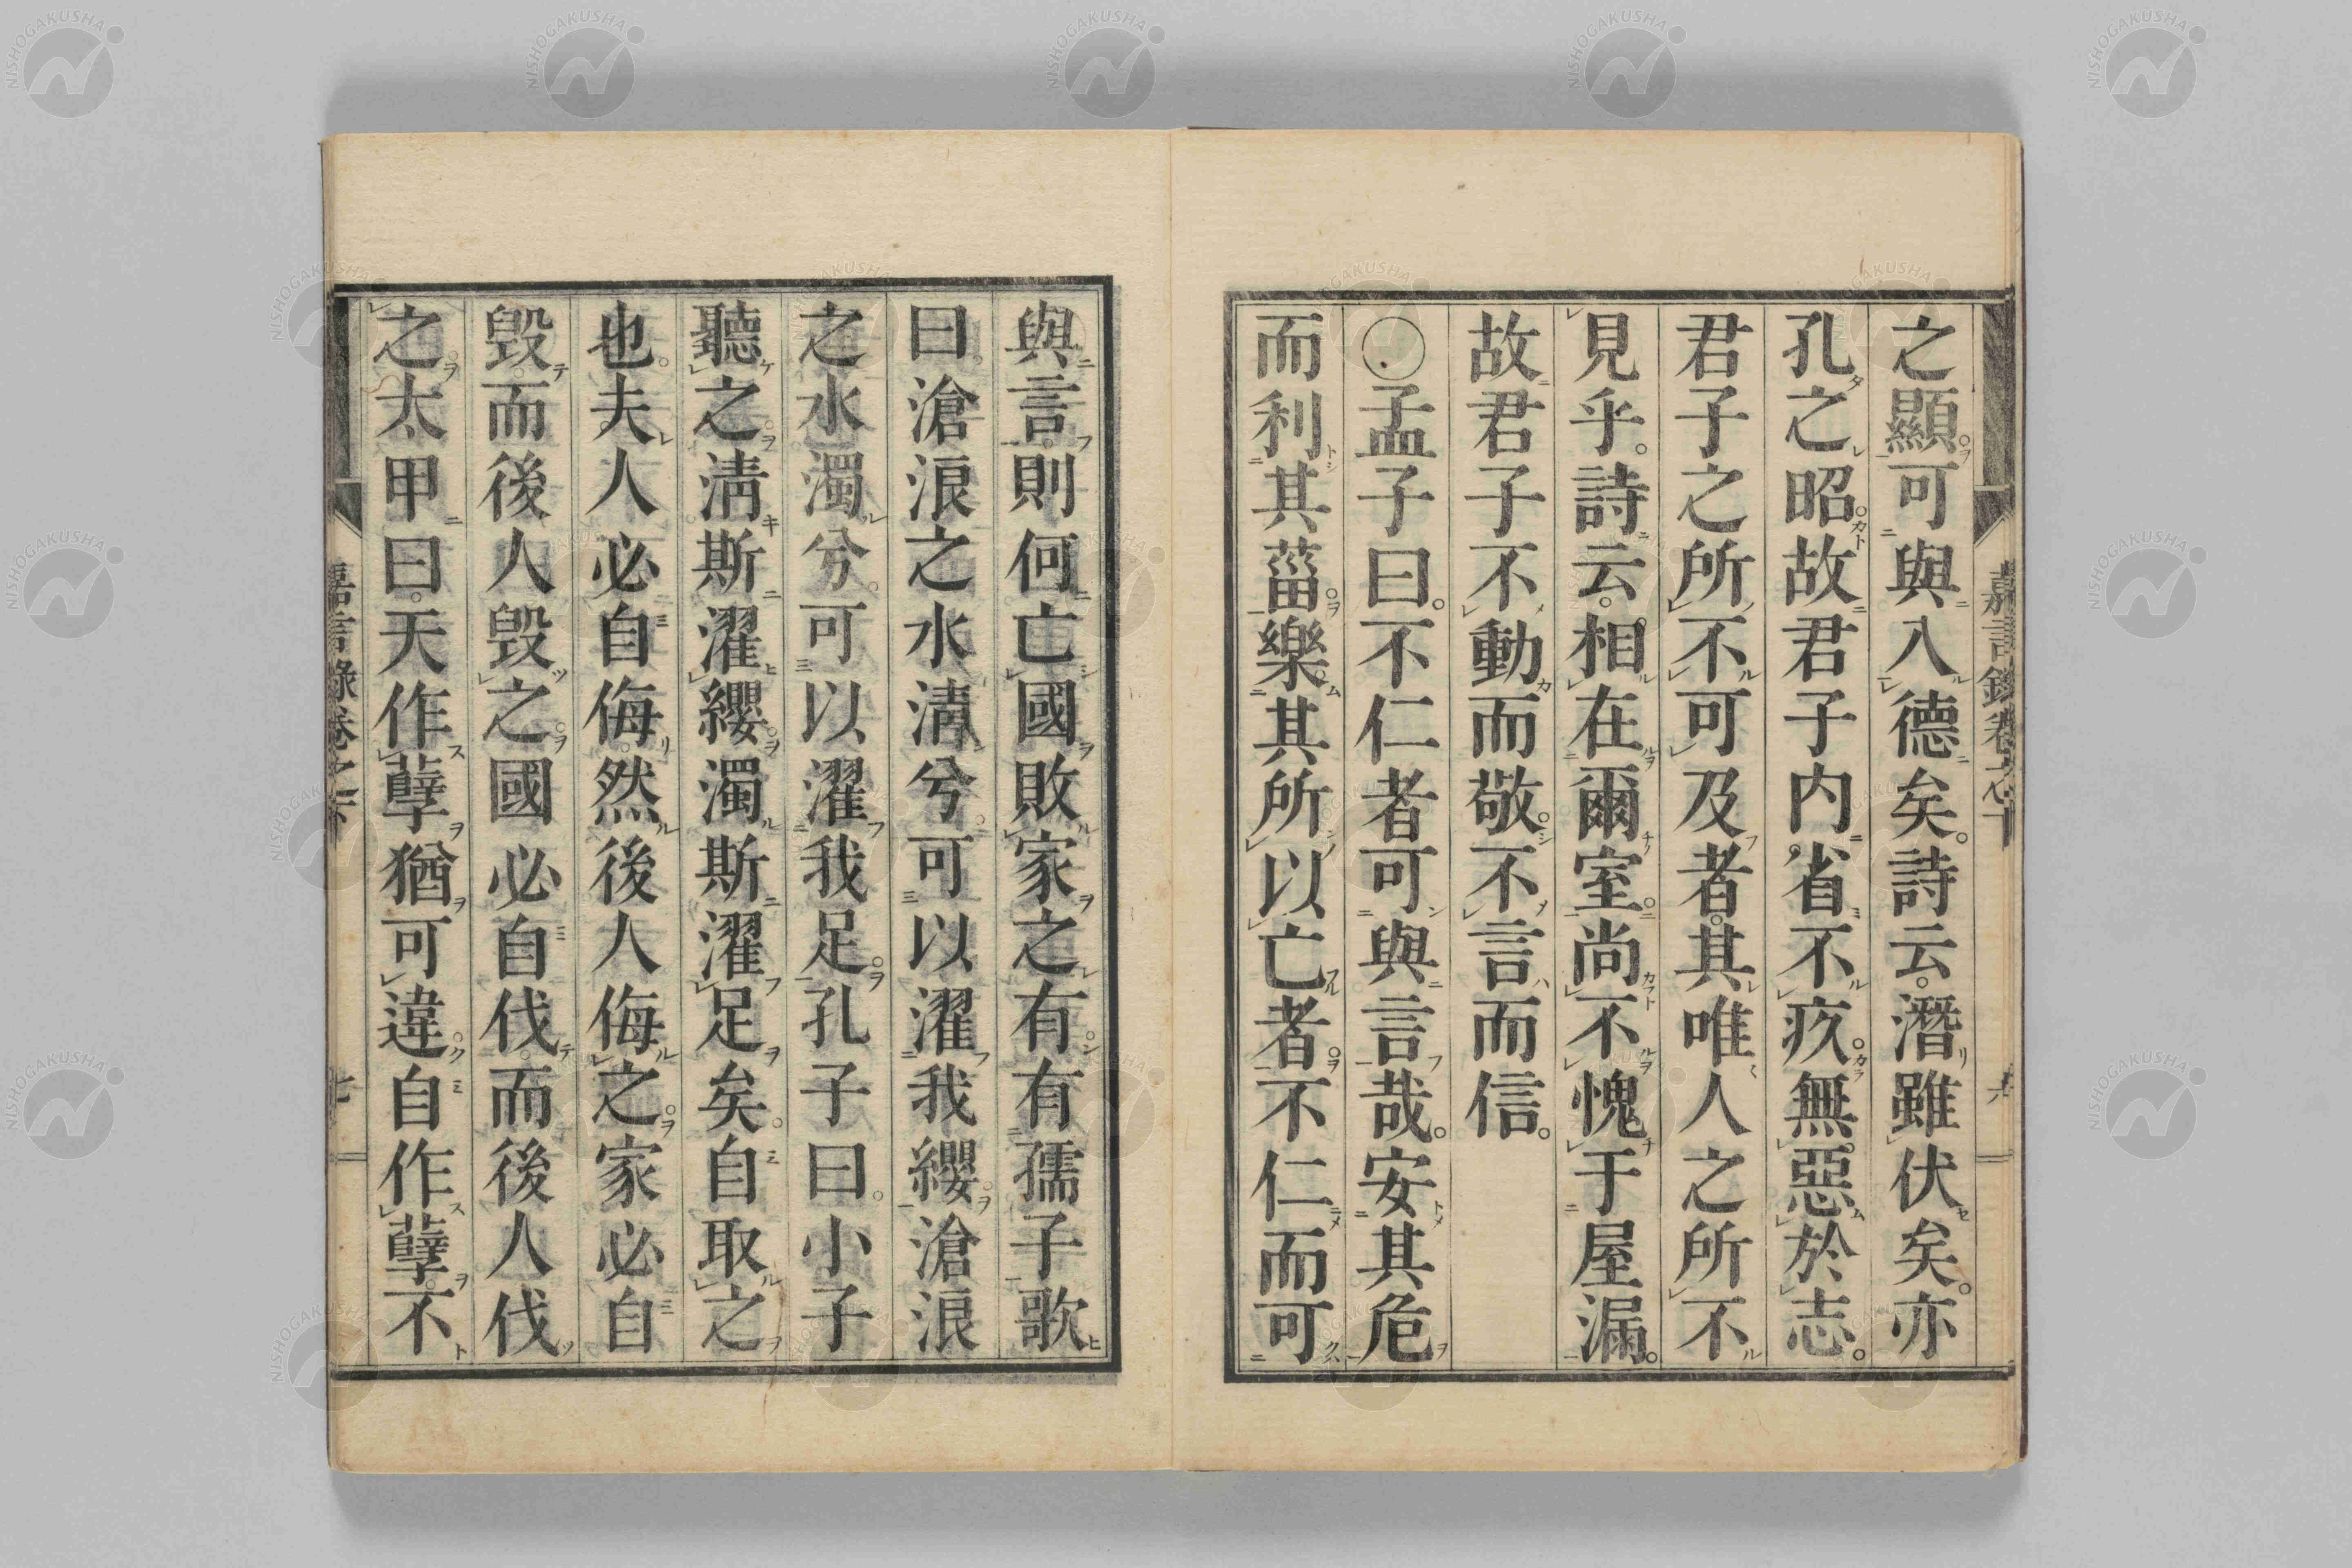 之顯可與入德矣。詩云。潛雖伏矣。亦
孔之昭。故君子内省不疚。無惡於志。
君子之所不可及者。其唯人之所不
見乎。詩云。相在爾室。尚不愧于屋漏。
故君子不動而敬。不言而信。
○孟子曰。不仁者可與言哉。安其危
而利其菑。樂其所以亡者。不仁而可
與言。則何亡國敗家之有。有孺子歌
曰。滄浪之水清兮。可以濯我纓。滄浪
之水濁兮。可以濯我足。孔子曰。小子
聽之。清斯濯纓。濁斯濯足矣。自取之
也。夫人必自侮。然後人侮之。家必自
毀。而後人毀之。國必自伐。而後人伐
之。太甲曰。天作孽猶可違。自作孽。不
嘉言錄卷之下
NISHOGAKUSHA